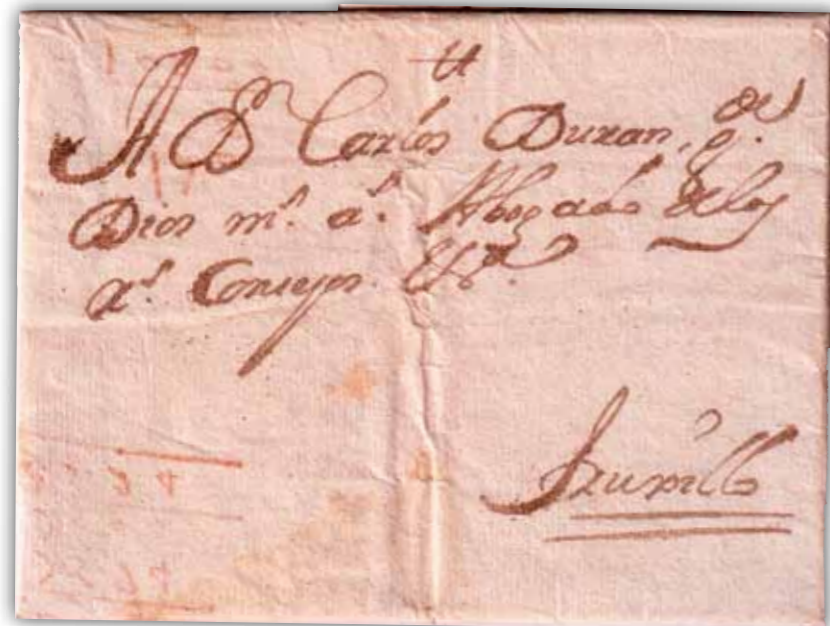 A Dn Carlos Duran, q. de
Dios ms. as. Abogado de los
Rs. Consejos &a.
Truxillo